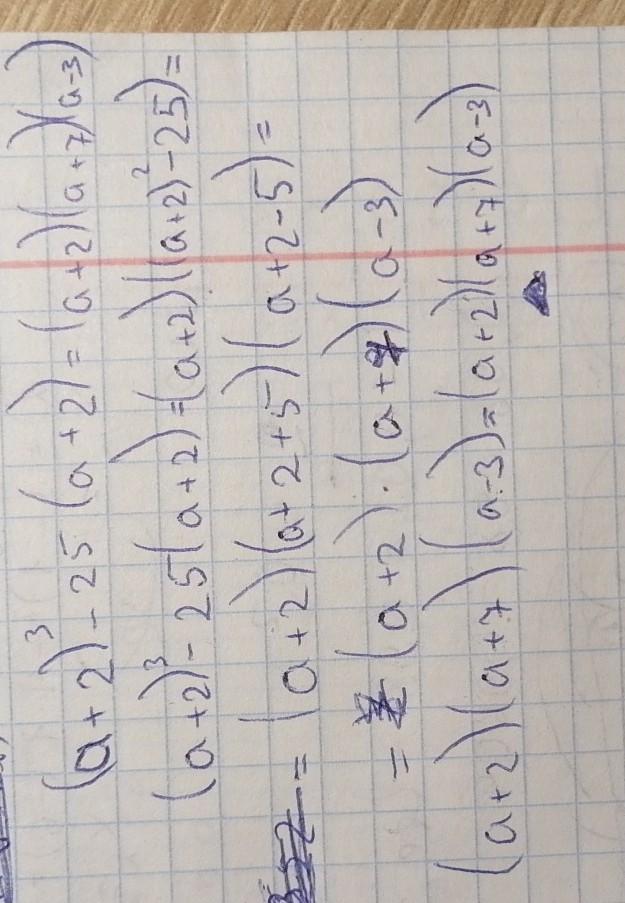 (a+2)³-25(a+2)=(a+2)(a+7)(a-3)
(a+2)³-25(a+2)=(a+2)((a+2)²-25)=
=(a+2)(a+2+5)(a+2-5)=
=(a+2)·(a+7)(a-3)
(a+2)(a+7)(a-3)=(a+2)(a+7)(a-3)